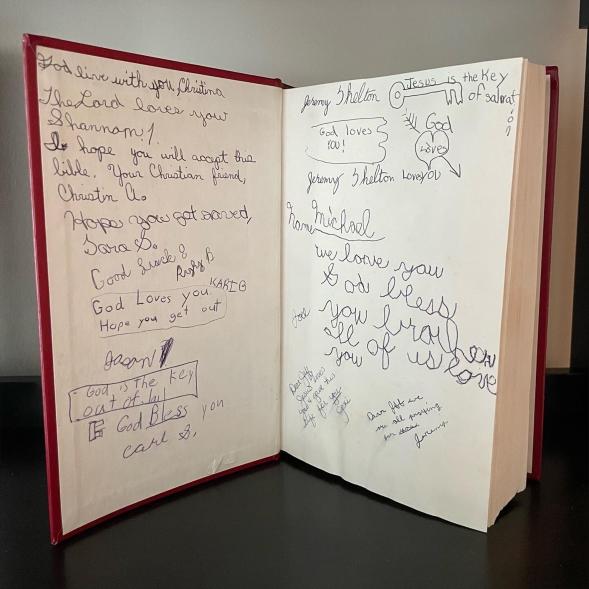 God live with you, Christina
The Lord loves you
Shannon!
I hope you will accept this
bible. Your Christian friend,
Christin A.
Hope you get saved,
Sara S.
Good Luck &
Rusty B
KARI B
God Loves you
Hope you get out
Jason
God is The key
out of
God Bless you
Carl S.
Jeremy Shelton
Jesus is the Key
of salvation
God loves
YOU!
God
Loves
You
Jeremy Shelton
name
Michael
we love you
God bless
you
all
you of us love
Dear
you
give
life for you
we
all praying
Jeremy